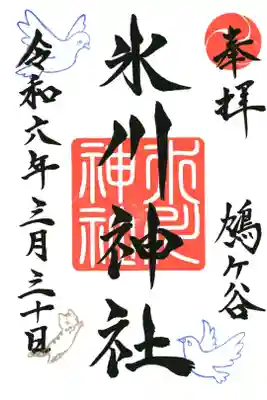 奉拝
鳩ヶ谷
氷川神社
氷川神社
令和六年三月三十日